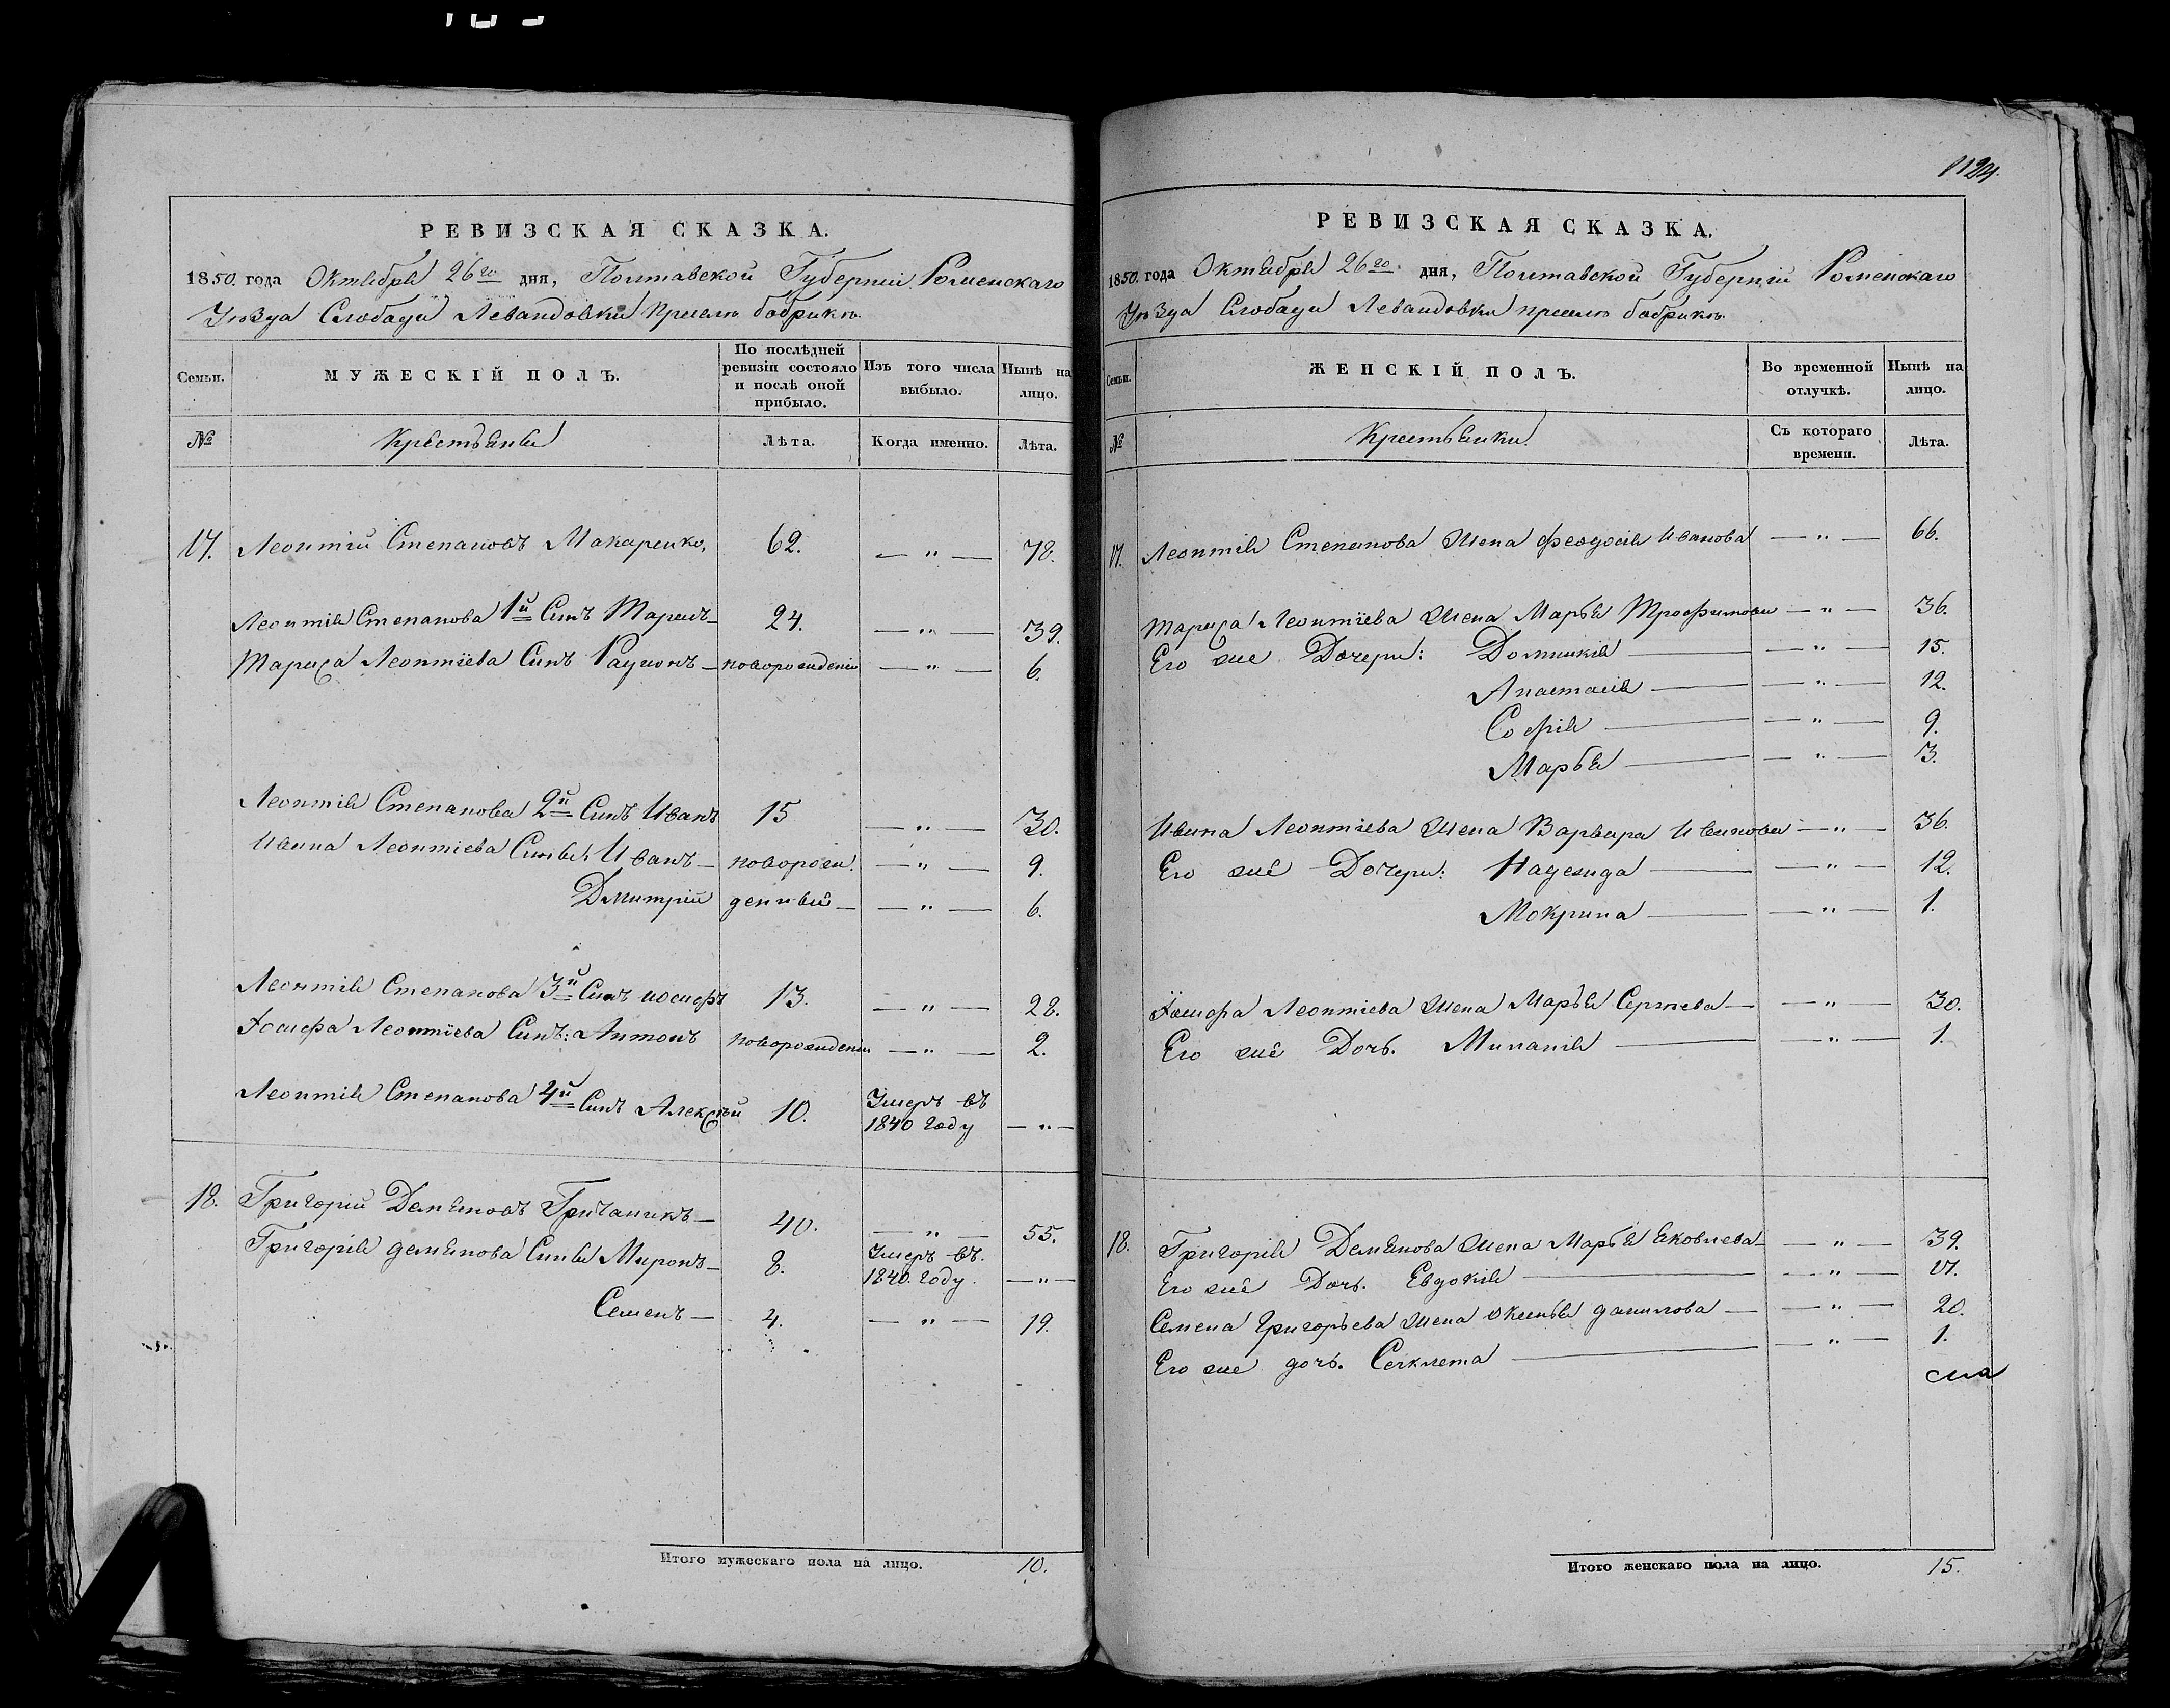 РЕВИЗСКАЯ СКАЗКА.
1850. года Октября 26го дня, Полтавской Губерніи Роменскаго
Уѣзда Слободы Левандовки при селѣ бобрикѣ.
Семьи.
МУЖЕСКІЙ ПОЛЪ.
По послѣдней ревизіи состояло и послѣ оной прибыло.
Изъ того числа выбыло.
Нынѣ на лицо.
№
Крестьяне
Лѣта.
Когда именно.
Лѣта.
17. Леонтій Степановъ Макаренко, 62. — " — 78.
Леонтія Степанова 1й Синъ Тарасъ — 24. — " — 39.
Тараса Леонтіева Синъ — новорожденій — " — 6.
Леонтія Степанова 2й Синъ Иванъ 15 — " — 30.
Ивана Леонтіева Сины: Иванъ — поворож. — " — 9.
Дмитрій денные — — " — 6.
Леонтія Степанова 3й Синъ иосифъ 13. — " — 28.
Іосифа Леонтіева Синъ: Антонъ новорожденій — " — 2.
Леонтія Степанова 4й Синъ Алексѣй 10. Умеръ въ
1840 году — " —
18. Григорій Демяновъ Гричаникъ — 40. — " — 55.
Григорія демянова Сины Миронъ — 8. Умеръ въ.
1840. году. — " —
Семенъ — 4. — " — 19.
Итого мужескаго пола на лицо. 10.
РЕВИЗСКАЯ СКАЗКА.
1850. года Октября 26го. дня, Полтавской Губерніи Роменскаго
Уѣзда Слободы Левандовки при селѣ бобрикѣ.
Семьи.
ЖЕНСКІЙ ПОЛЪ.
Во временной отлучкѣ.
Нынѣ на лицо.
№
Крестьянки.
Съ котораго времени.
Лѣта.
17. Леонтія Степанова жена феодосія Иванова — " — 66.
Тараса Леонтіева жена Марья Трофимова — " — 36.
Его же Дочери: Домникія — — " — 15.
Анастасія — — " — 12.
Софія — — " — 9.
Марья — — " — 3.
Ивана Леонтіева жена Варвара Иванова — " — 36.
Его же Дочери: Надежда — — " — 12.
Мокрина — — " — 1.
Іосифа Леонтіева жена Марья Сергѣева — — " — 30.
Его же Дочь. Миланія — — " — 1.
18. Григорія Демянова жена Марья Яковлева — — " — 39.
Его же Дочь. Евдокія — — " — 17.
Семена Григорьева жена данилова — — " — 20.
Его же дочь. Секлета — — " — 1.
Итого женскаго пола на лицо. 15.